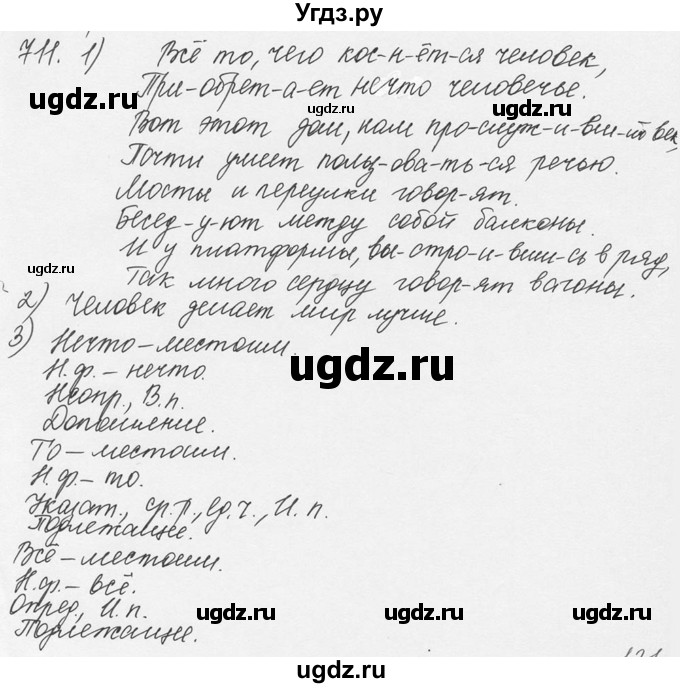 Угдз.ру
711. 1) Всё то, чего кос-н-ёт-ся человек,
При-обрет-а-ет нечто человечье.
Вот этот дом, нам про-служ-и-вш-ий век,
Почти умеет польз-ова-ть-ся речью.
Мосты и переулки говор-ят.
Бесед-у-ют между собой балконы.
И у платформы, вы-стро-и-вши-сь в ряд,
ugdz.ru
Так много сердцу говор-ят вагоны.
ugdz.ru
2) Человек делает мир лучше.
3) Нечто – местоим.
ugdz.ru
Н.ф. – нечто.
ugdz.ru
ugdz.ru
Неопр., В.п.
Дополнение.
То – местоим.
Н.ф. – то.
Указат., ср.р., ед.ч., И.п.
Подлежащее.
Всё – местоим.
Н.ф. – всё.
Опред., И.п.
ugdz.ru
ugdz.ru
ugdz.ru
Подлежащее.
ugdz.ru